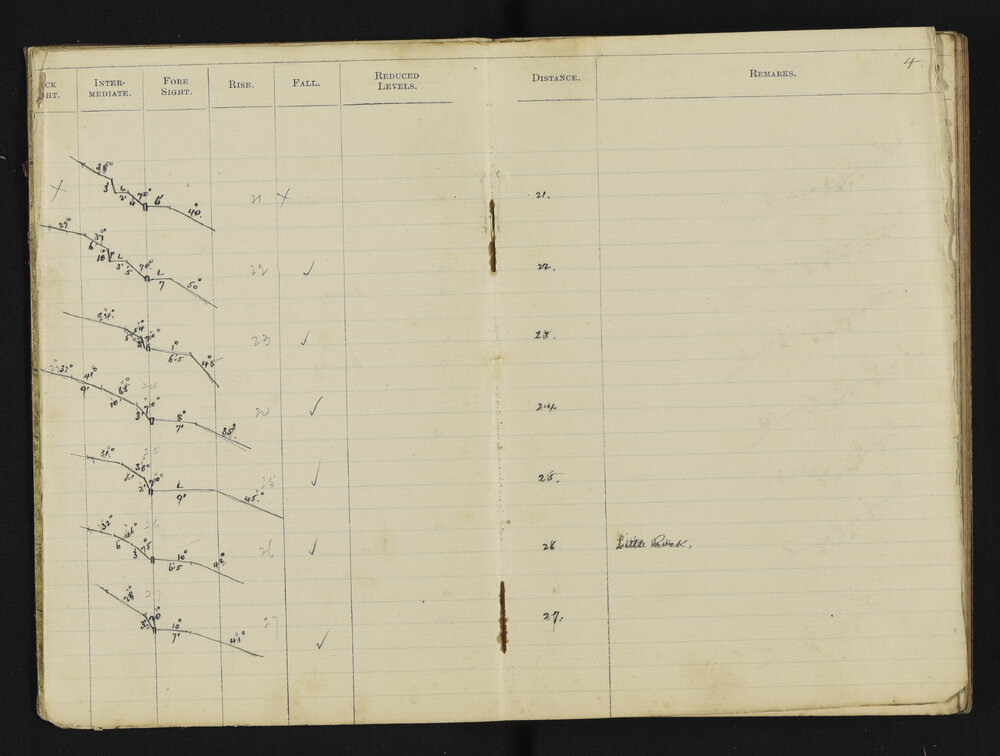 4.
CK
HT.
INTER-
MEDIATE.
FORE
SIGHT.
RISE.
FALL.
REDUCED
LEVELS.
DISTANCE.
REMARKS.
38° 3' L 2' 4 70° 6' 40.
21 21.
27° 37° 6' 10' L 3' 5 70° L 7 50°
22 22.
70° 1° 6.5 45
23 23.
41° 9' 10' 3' 70° 8° 7' 35°
24 24 24.
6' 2' 70° L 9' 45°
25 25 25.
32° 6' 3 75 10° 6.5 42°
26 26 26 Little Rock.
28° 70° 10° 7' 41°
27 27 27.